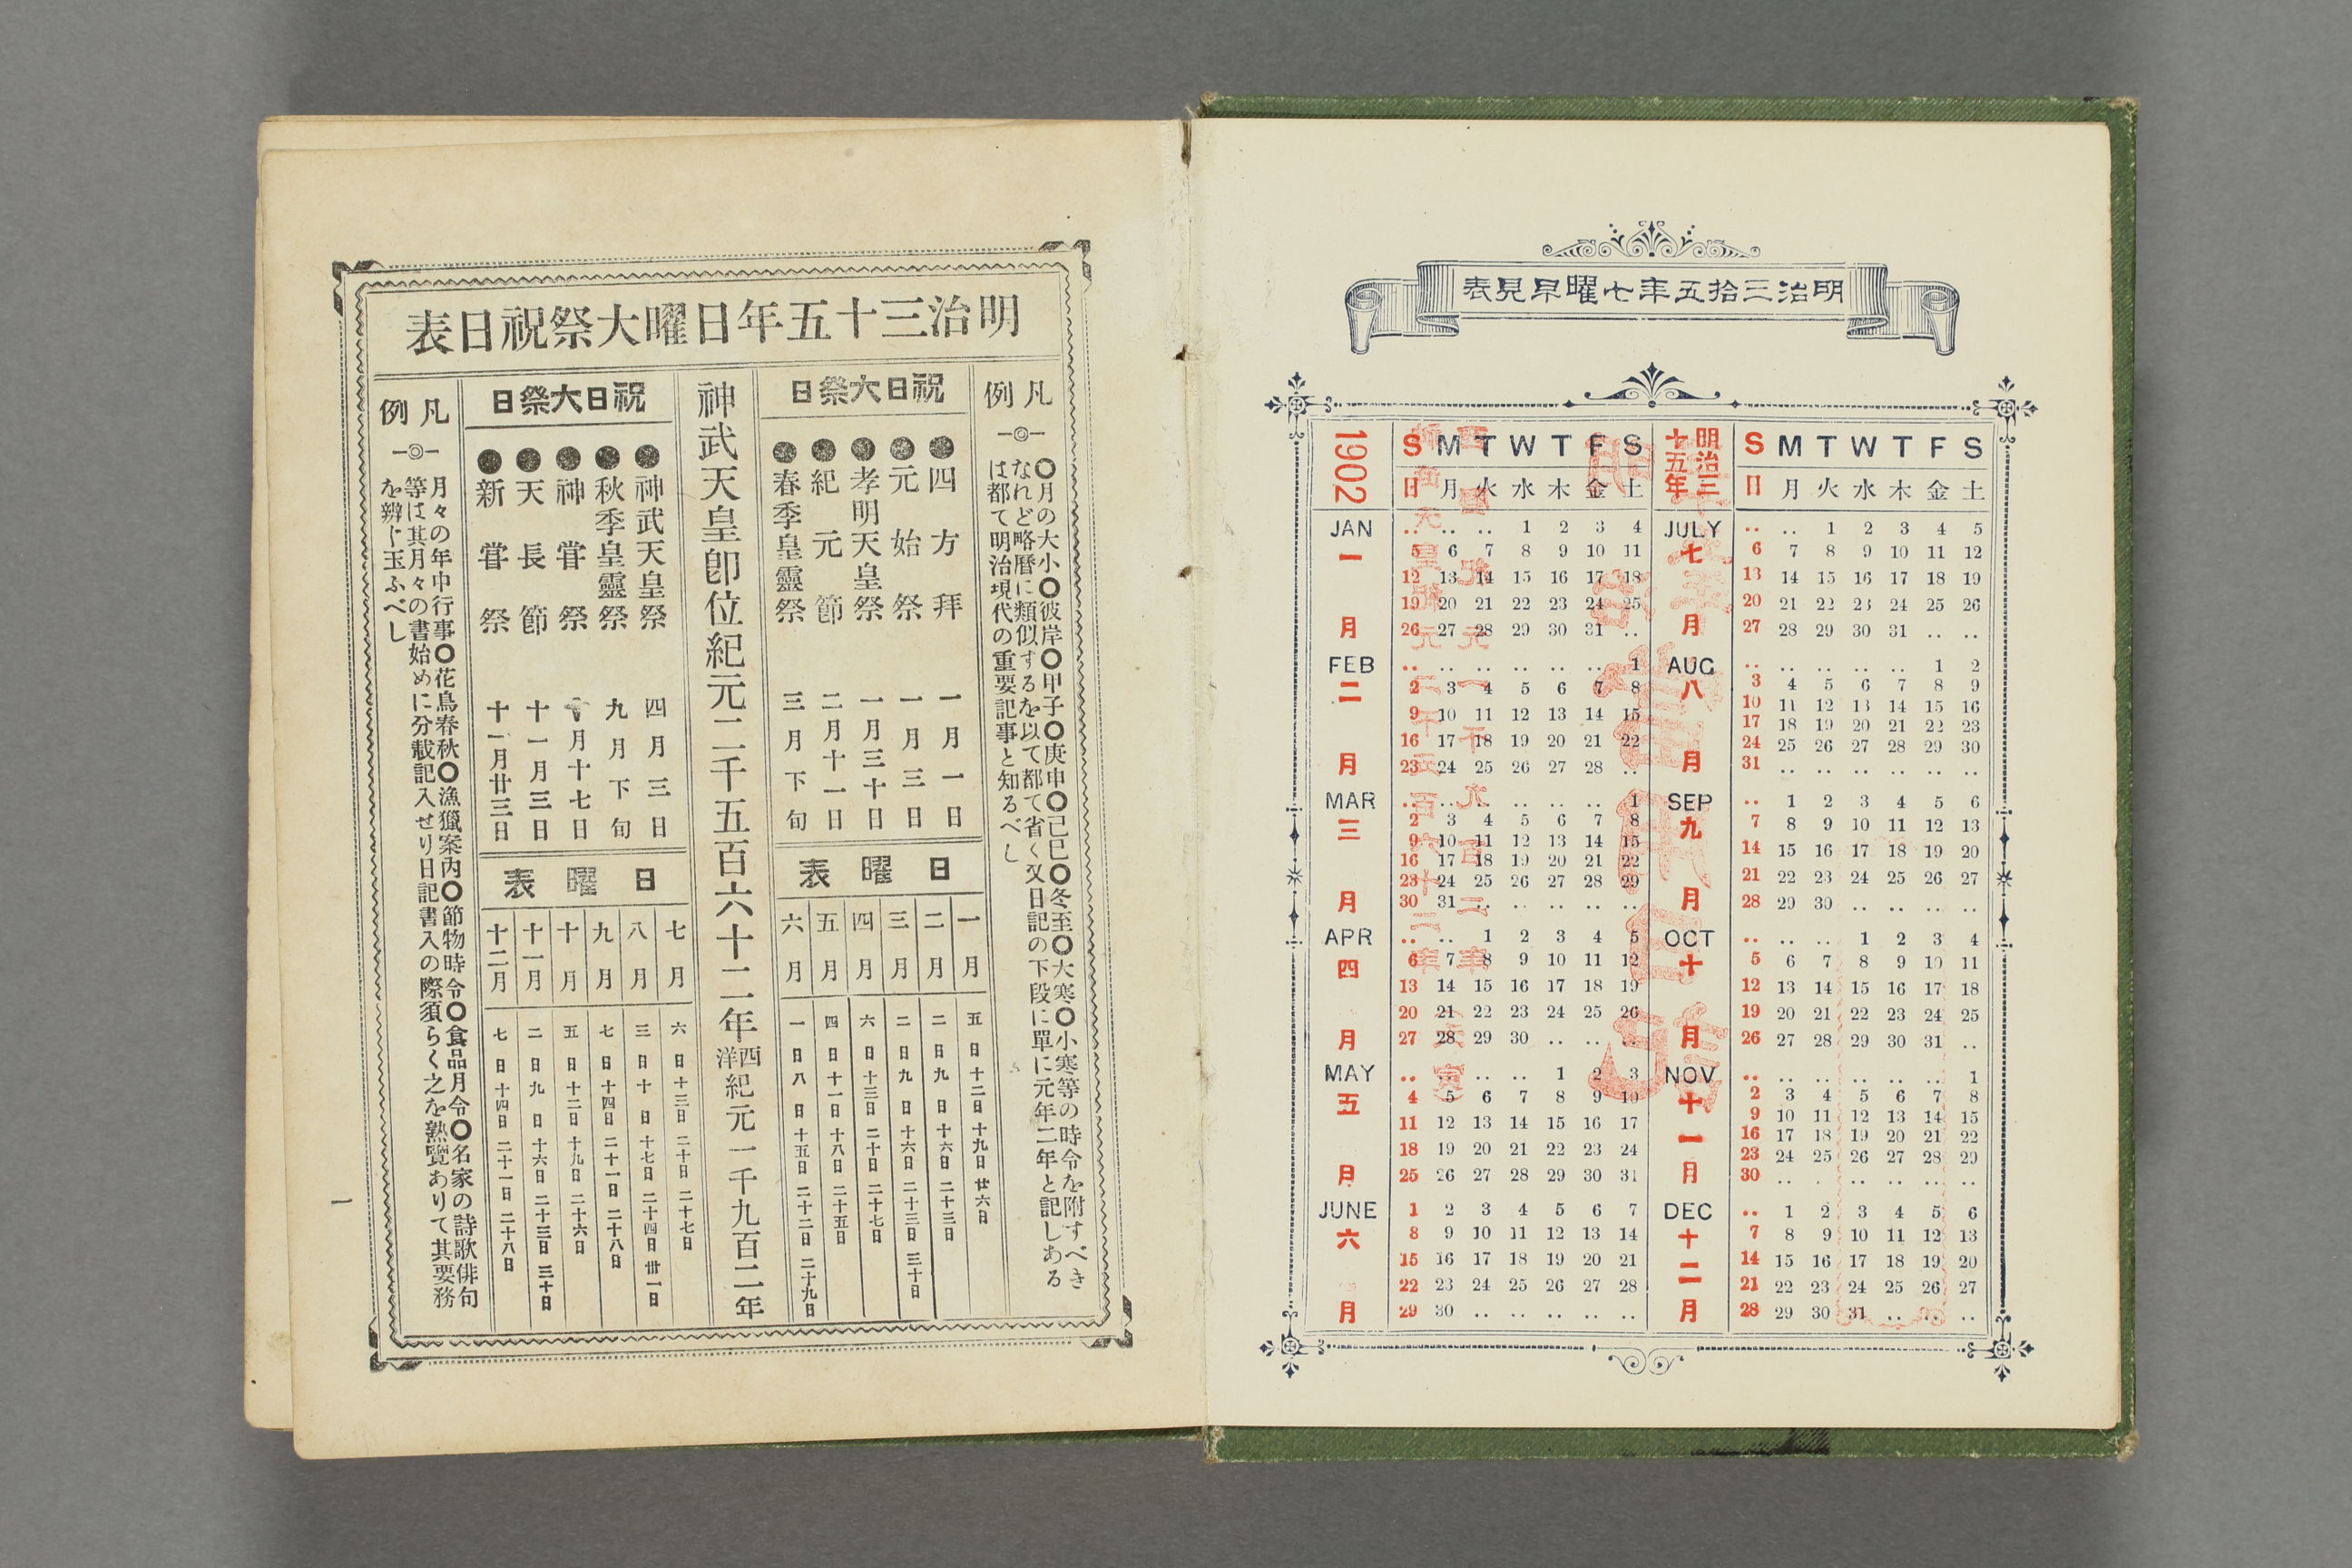 明治三拾五年七曜早見表
1902
S M T W T F S
日 月 火 水 木 金 土
JAN 一月
.. .. .. 1 2 3 4
5 6 7 8 9 10 11
12 13 14 15 16 17 18
19 20 21 22 23 24 25
26 27 28 29 30 31 ..
FEB 二月
.. .. .. .. .. .. 1
2 3 4 5 6 7 8
9 10 11 12 13 14 15
16 17 18 19 20 21 22
23 24 25 26 27 28 ..
MAR 三月
.. .. .. .. .. .. 1
2 3 4 5 6 7 8
9 10 11 12 13 14 15
16 17 18 19 20 21 22
23 24 25 26 27 28 29
30 31 .. .. .. .. ..
APR 四月
.. .. 1 2 3 4 5
6 7 8 9 10 11 12
13 14 15 16 17 18 19
20 21 22 23 24 25 26
27 28 29 30 .. .. ..
MAY 五月
.. .. .. .. 1 2 3
4 5 6 7 8 9 10
11 12 13 14 15 16 17
18 19 20 21 22 23 24
25 26 27 28 29 30 31
JUNE 六月
1 2 3 4 5 6 7
8 9 10 11 12 13 14
15 16 17 18 19 20 21
22 23 24 25 26 27 28
29 30 .. .. .. .. ..
明治三十五年
S M T W T F S
日 月 火 水 木 金 土
JULY 七月
.. .. 1 2 3 4 5
6 7 8 9 10 11 12
13 14 15 16 17 18 19
20 21 22 23 24 25 26
27 28 29 30 31 .. ..
AUG 八月
.. .. .. .. .. 1 2
3 4 5 6 7 8 9
10 11 12 13 14 15 16
17 18 19 20 21 22 23
24 25 26 27 28 29 30
31 .. .. .. .. .. ..
SEP 九月
.. 1 2 3 4 5 6
7 8 9 10 11 12 13
14 15 16 17 18 19 20
21 22 23 24 25 26 27
28 29 30 .. .. .. ..
OCT 十月
.. .. .. 1 2 3 4
5 6 7 8 9 10 11
12 13 14 15 16 17 18
19 20 21 22 23 24 25
26 27 28 29 30 31 ..
NOV 十一月
.. .. .. .. .. .. 1
2 3 4 5 6 7 8
9 10 11 12 13 14 15
16 17 18 19 20 21 22
23 24 25 26 27 28 29
30 .. .. .. .. .. ..
DEC 十二月
.. 1 2 3 4 5 6
7 8 9 10 11 12 13
14 15 16 17 18 19 20
21 22 23 24 25 26 27
28 29 30 31 .. .. ..
明治三十五年日曜大祭祝日表
凡例
○月の大小○彼岸○甲子○庚申○己巳○冬至○大寒○小寒等の時令を附すべき
なれど略暦に類似するを以て都て省く又日記の下段に單に元年二年と記しある
は都て明治現代の重要記事と知るべし
祝日大祭日
●四方拜 一月一日
●元始祭 一月三日
●孝明天皇祭 一月三十日
●紀元節 二月十一日
●春季皇靈祭 三月下旬
日曜表
一月 五日 十二日 十九日 廿六日
二月 二日 九日 十六日 二十三日
三月 二日 九日 十六日 二十三日 三十日
四月 六日 十三日 二十日 二十七日
五月 四日 十一日 十八日 二十五日
六月 一日 八日 十五日 二十二日 二十九日
神武天皇卽位紀元二千五百六十二年
西洋紀元一千九百二年
祝日大祭日
●神武天皇祭 四月三日
●秋季皇靈祭 九月下旬
●神甞祭 十月十七日
●天長節 十一月三日
●新甞祭 十一月廿三日
日曜表
七月 六日 十三日 二十日 二十七日
八月 三日 十日 十七日 二十四日 卅一日
九月 七日 十四日 二十一日 二十八日
十月 五日 十二日 十九日 二十六日
十一月 二日 九日 十六日 二十三日 三十日
十二月 七日 十四日 二十一日 二十八日
凡例
月々の年中行事○花鳥春秋○漁獵案内○節物時令○食品月令○名家の詩歌俳句
等は其月々の書始めに分載記入せり日記書入の際須らく之を熟覽ありて其要務
を辨じ玉ふべし
一